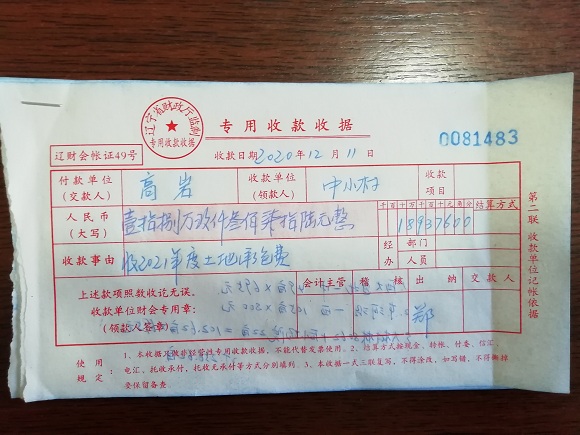 辽宁省财政厅监制
专用收款收据
专用收款收据
0081483
辽财会帐证49号
收款日期2020年12月11日
付款单位(交款人) 高岩 收款单位(领款人) 中小村 收款项目
人民币(大写) 壹拾捌万玖仟叁佰柒拾陆元整 千百十万千百十元角分 结算方式
18937600
收款事由 收2021年度土地承包费 经办 部门 人员
上述款项照数收讫无误。 会计主管 稽核 出纳 交款人
收款单位财会专用章: 郑
(领款人签章)
使用规定 1、本收据只做非经营性专用收款收据,不能代替发票使用。2、结算方式按现金、转帐、付委、信汇、
电汇,托收承付,托收无承付等方式分别填列。3、本收据一式三联复写,不得涂改,如写错,不得撕掷
要保留备查。
第二联 收款单位记帐依据